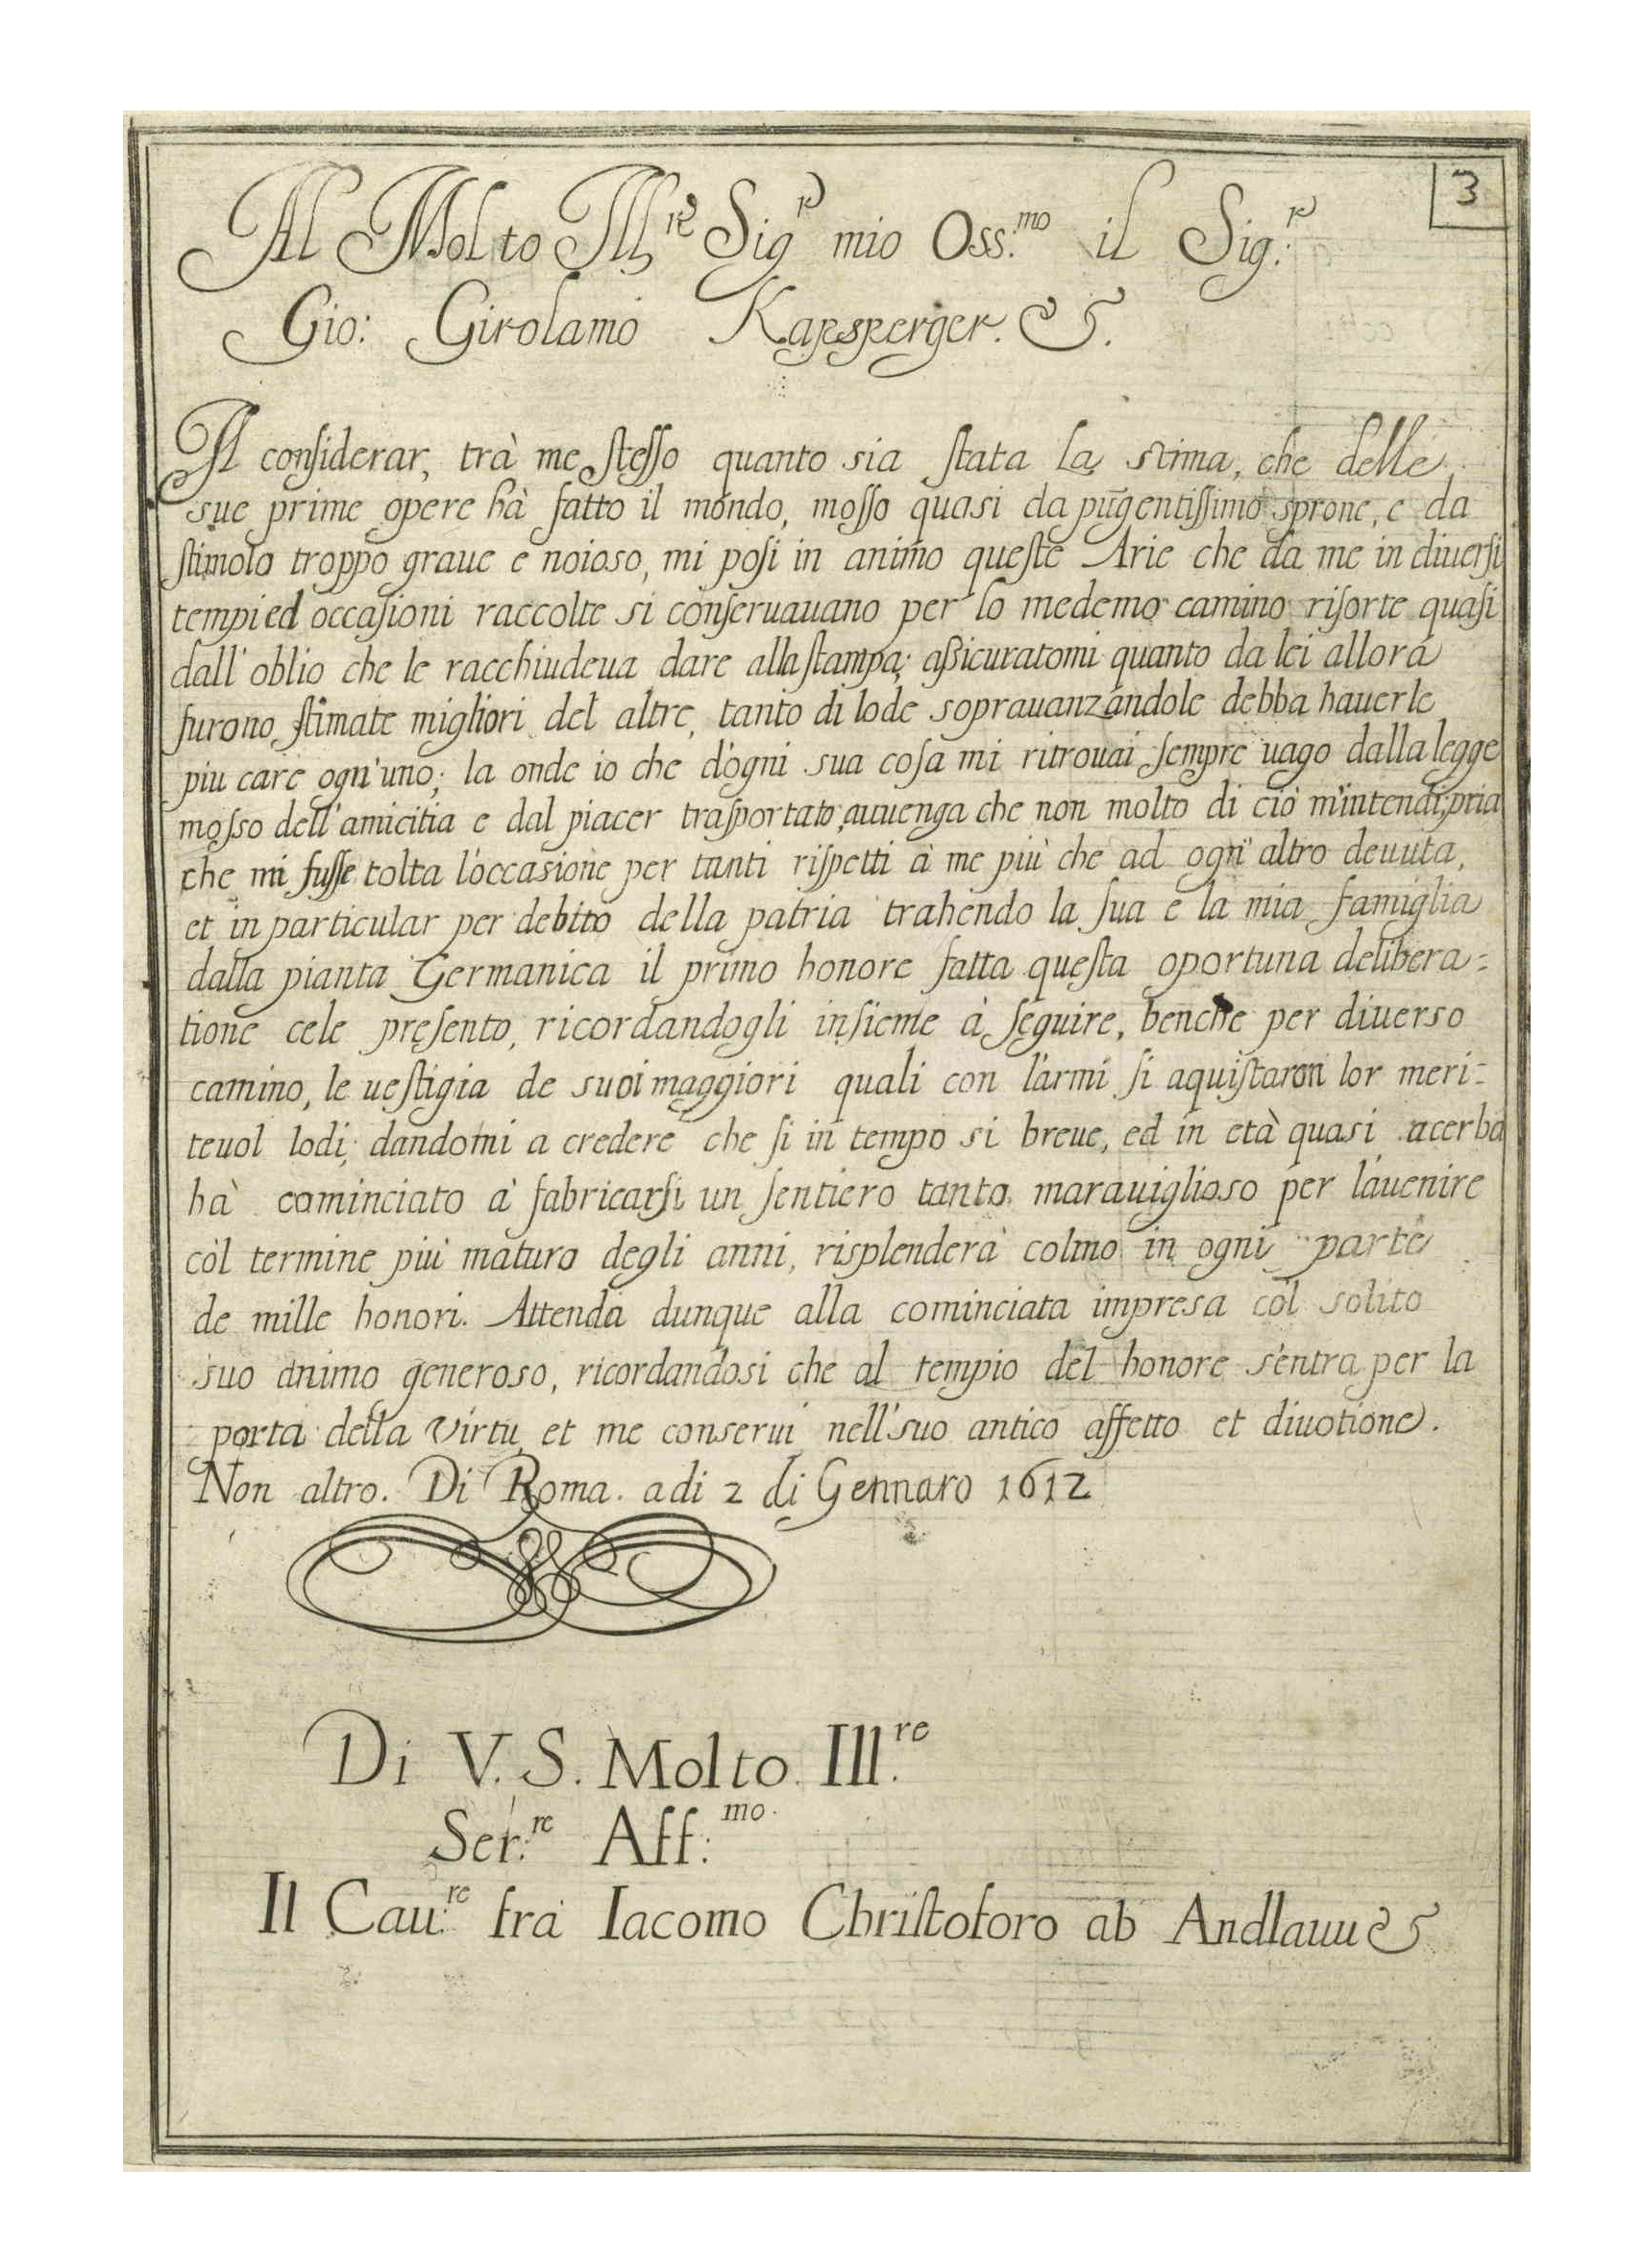 3
Al Molto Ill.re Sig.r mio Oss.mo il Sig.r
Gio: Girolamo Kapsperger. &.
Al conſiderar, trà me ſteſſo quanto sia ſtata la stima, che delle
sue prime opere hà fatto il mondo, moſſo quasi da pūgentiſſimo sprone, e da
ſtimolo troppo graue e noioso, mi poſi in animo queſte Arie che da me in diuerſi
tempi ed occaſioni raccolte si conſeruauano per lo medemo camino riſorte quaſi
dall'oblio che le racchiudeua dare alla ſtampa; aßicuratomi quanto da lei allora
furono ſtimate migliori del altre, tanto di lode soprauanzandole debba hauerle
piu care ogn'uno; la onde io che d'ogni sua coſa mi ritrouai ſempre uago dalla legge
moſso dell'amicitia e dal piacer traſportato, auuenga che non molto di ciò m'intendi, pria
che mi fuſſe tolta l'occasione per tanti riſpetti à me più che ad ogn'altro deuuta,
et in particular per debito della patria trahendo la ſua e la mia famiglia
dalla pianta Germanica il primo honore fatta queſta oportuna delibera=
tione cele preſento, ricordandogli inſieme à ſeguire, benche per diuerso
camino, le ueſtigia de suoi maggiori quali con l'armi ſi aquiſtaron lor meri=
teuol lodi; dandomi a credere che ſi in tempo si breue, ed in età quasi acerba
hà cominciato à fabricarſi un ſentiero tanto marauiglioso per l'auenire
còl termine più maturo degli anni, risplenderà colmo in ogni parte
de mille honori. Attenda dunque alla cominciata impresa còl solito
suo animo generoso, ricordandosi che al tempio del honore s'entra per la
porta della Virtu, et me conserui nell'suo antico affetto et diuotione.
Non altro. Di Roma. adi 2 di Gennaro 1612
Di V. S. Molto Ill.re
Ser.re Aff:mo.
Il Cau:re fra Iacomo Chriſtoforo ab Andlauu &